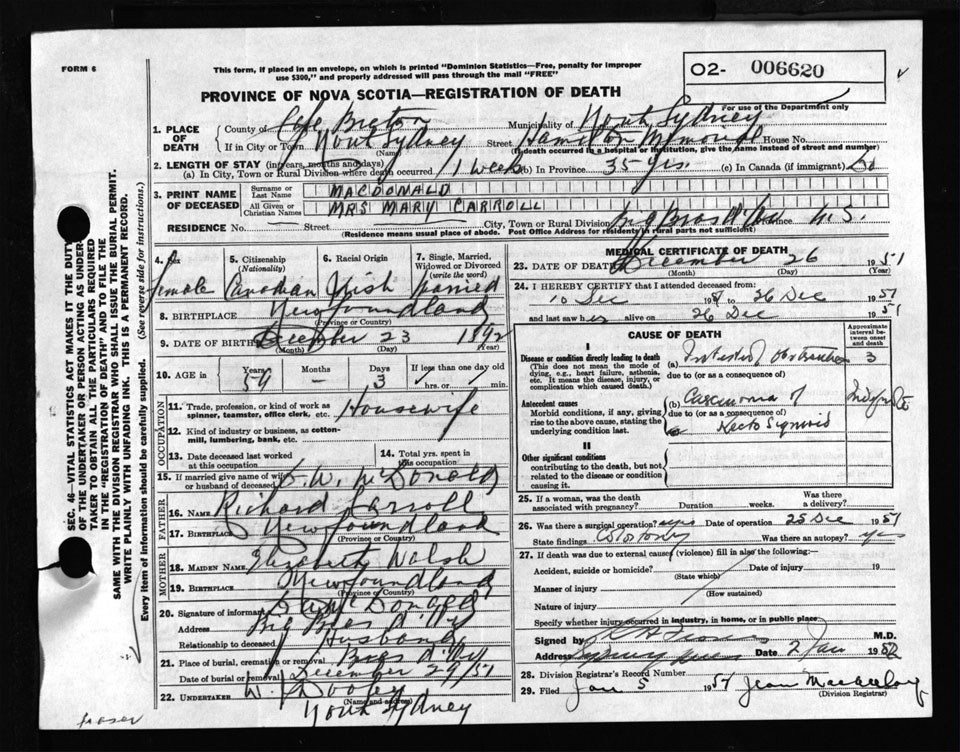 FORM 6
This form, if placed in an envelope, on which is printed "Dominion Statistics—Free, penalty for improper
use $300," and properly addressed will pass through the mail "FREE"
O2- 006620
For use of the Department only
PROVINCE OF NOVA SCOTIA—REGISTRATION OF DEATH
1. PLACE OF DEATH County of Cape Breton Municipality of North Sydney
If in City or Town North Sydney (Name) Street Hamilton Memorial House No.
(If death occurred in a hospital or institution, give the name instead of street and number)
2. LENGTH OF STAY (in years, months and days)
(a) In City, Town or Rural Division where death occurred 1 week (b) In Province 35 yrs (c) In Canada (if immigrant) Do
3. PRINT NAME OF DECEASED Surname or Last Name MACDONALD
All Given or Christian Names MRS MARY CARROLL
RESIDENCE No. Street City, Town or Rural Division Big Bras d'Or N.S.
(Residence means usual place of abode. Post Office Address for residents in rural parts not sufficient)
4. Sex Female 5. Citizenship (Nationality) Canadian 6. Racial Origin Irish 7. Single, Married, Widowed or Divorced (write the word) Married
8. BIRTHPLACE Newfoundland (Province or Country)
9. DATE OF BIRTH December 23 1892
(Month) (Day) (Year)
10. AGE in Years 59 Months — Days 3 If less than one day old hrs. or min.
OCCUPATION
11. Trade, profession, or kind of work as spinner, teamster, office clerk, etc. Housewife
12. Kind of industry or business, as cotton-mill, lumbering, bank, etc.
13. Date deceased last worked at this occupation 14. Total yrs. spent in this occupation
15. If married give name of wife or husband of deceased W. McDonald
FATHER
16. NAME Richard Carroll
17. BIRTHPLACE Newfoundland (Province or Country)
MOTHER
18. MAIDEN NAME Elizabeth Walsh
19. BIRTHPLACE Newfoundland (Province or Country)
20. Signature of informant
Address Big Bras d'Or
Relationship to deceased Husband
21. Place of burial, cremation or removal Bras d'Or
Date of burial or removal December 29/51
22. UNDERTAKER W. J. Dooley (Name and address)
North Sydney
MEDICAL CERTIFICATE OF DEATH
23. DATE OF DEATH December 26 1951
(Month) (Day) (Year)
24. I HEREBY CERTIFY that I attended deceased from:
10 Dec 19 to 26 Dec 1951
and last saw her alive on 26 Dec 1951
CAUSE OF DEATH
Approximate interval between onset and death
I
Disease or condition directly leading to death
(This does not mean the mode of dying, e.g., heart failure, asthenia, etc. It means the disease, injury, or complication which caused death.)
(a) Intestinal obstruction 3
due to (or as a consequence of)
Antecedent causes
Morbid conditions, if any, giving rise to the above cause, stating the underlying condition last.
(b) Carcinoma of
due to (or as a consequence of)
Recto Sigmoid
II
Other significant conditions
contributing to the death, but not related to the disease or condition causing it.
25. If a woman, was the death associated with pregnancy? Duration weeks Was there a delivery?
26. Was there a surgical operation? yes Date of operation 25 Dec 1951
State findings Was there an autopsy? yes
27. If death was due to external causes (violence) fill in also the following:—
Accident, suicide or homicide? (State which) Date of injury 19
Manner of injury (How sustained)
Nature of injury
Specify whether injury occurred in industry, in home, or in public place
Signed by M.D.
Address Sydney Mines Date 2 Jan 1952
28. Division Registrar's Record Number
29. Filed Jan 5 1951 Jean (Division Registrar)
SEC. 46—VITAL STATISTICS ACT MAKES IT THE DUTY
OF THE UNDERTAKER OR PERSON ACTING AS UNDER-
TAKER TO OBTAIN ALL THE PARTICULARS REQUIRED
IN THE "REGISTRATION OF DEATH" AND TO FILE THE
SAME WITH THE DIVISION REGISTRAR WHO SHALL ISSUE THE BURIAL PERMIT.
WRITE PLAINLY WITH UNFADING INK. THIS IS A PERMANENT RECORD.
Every item of information should be carefully supplied. (See reverse side for instructions.)
fraser